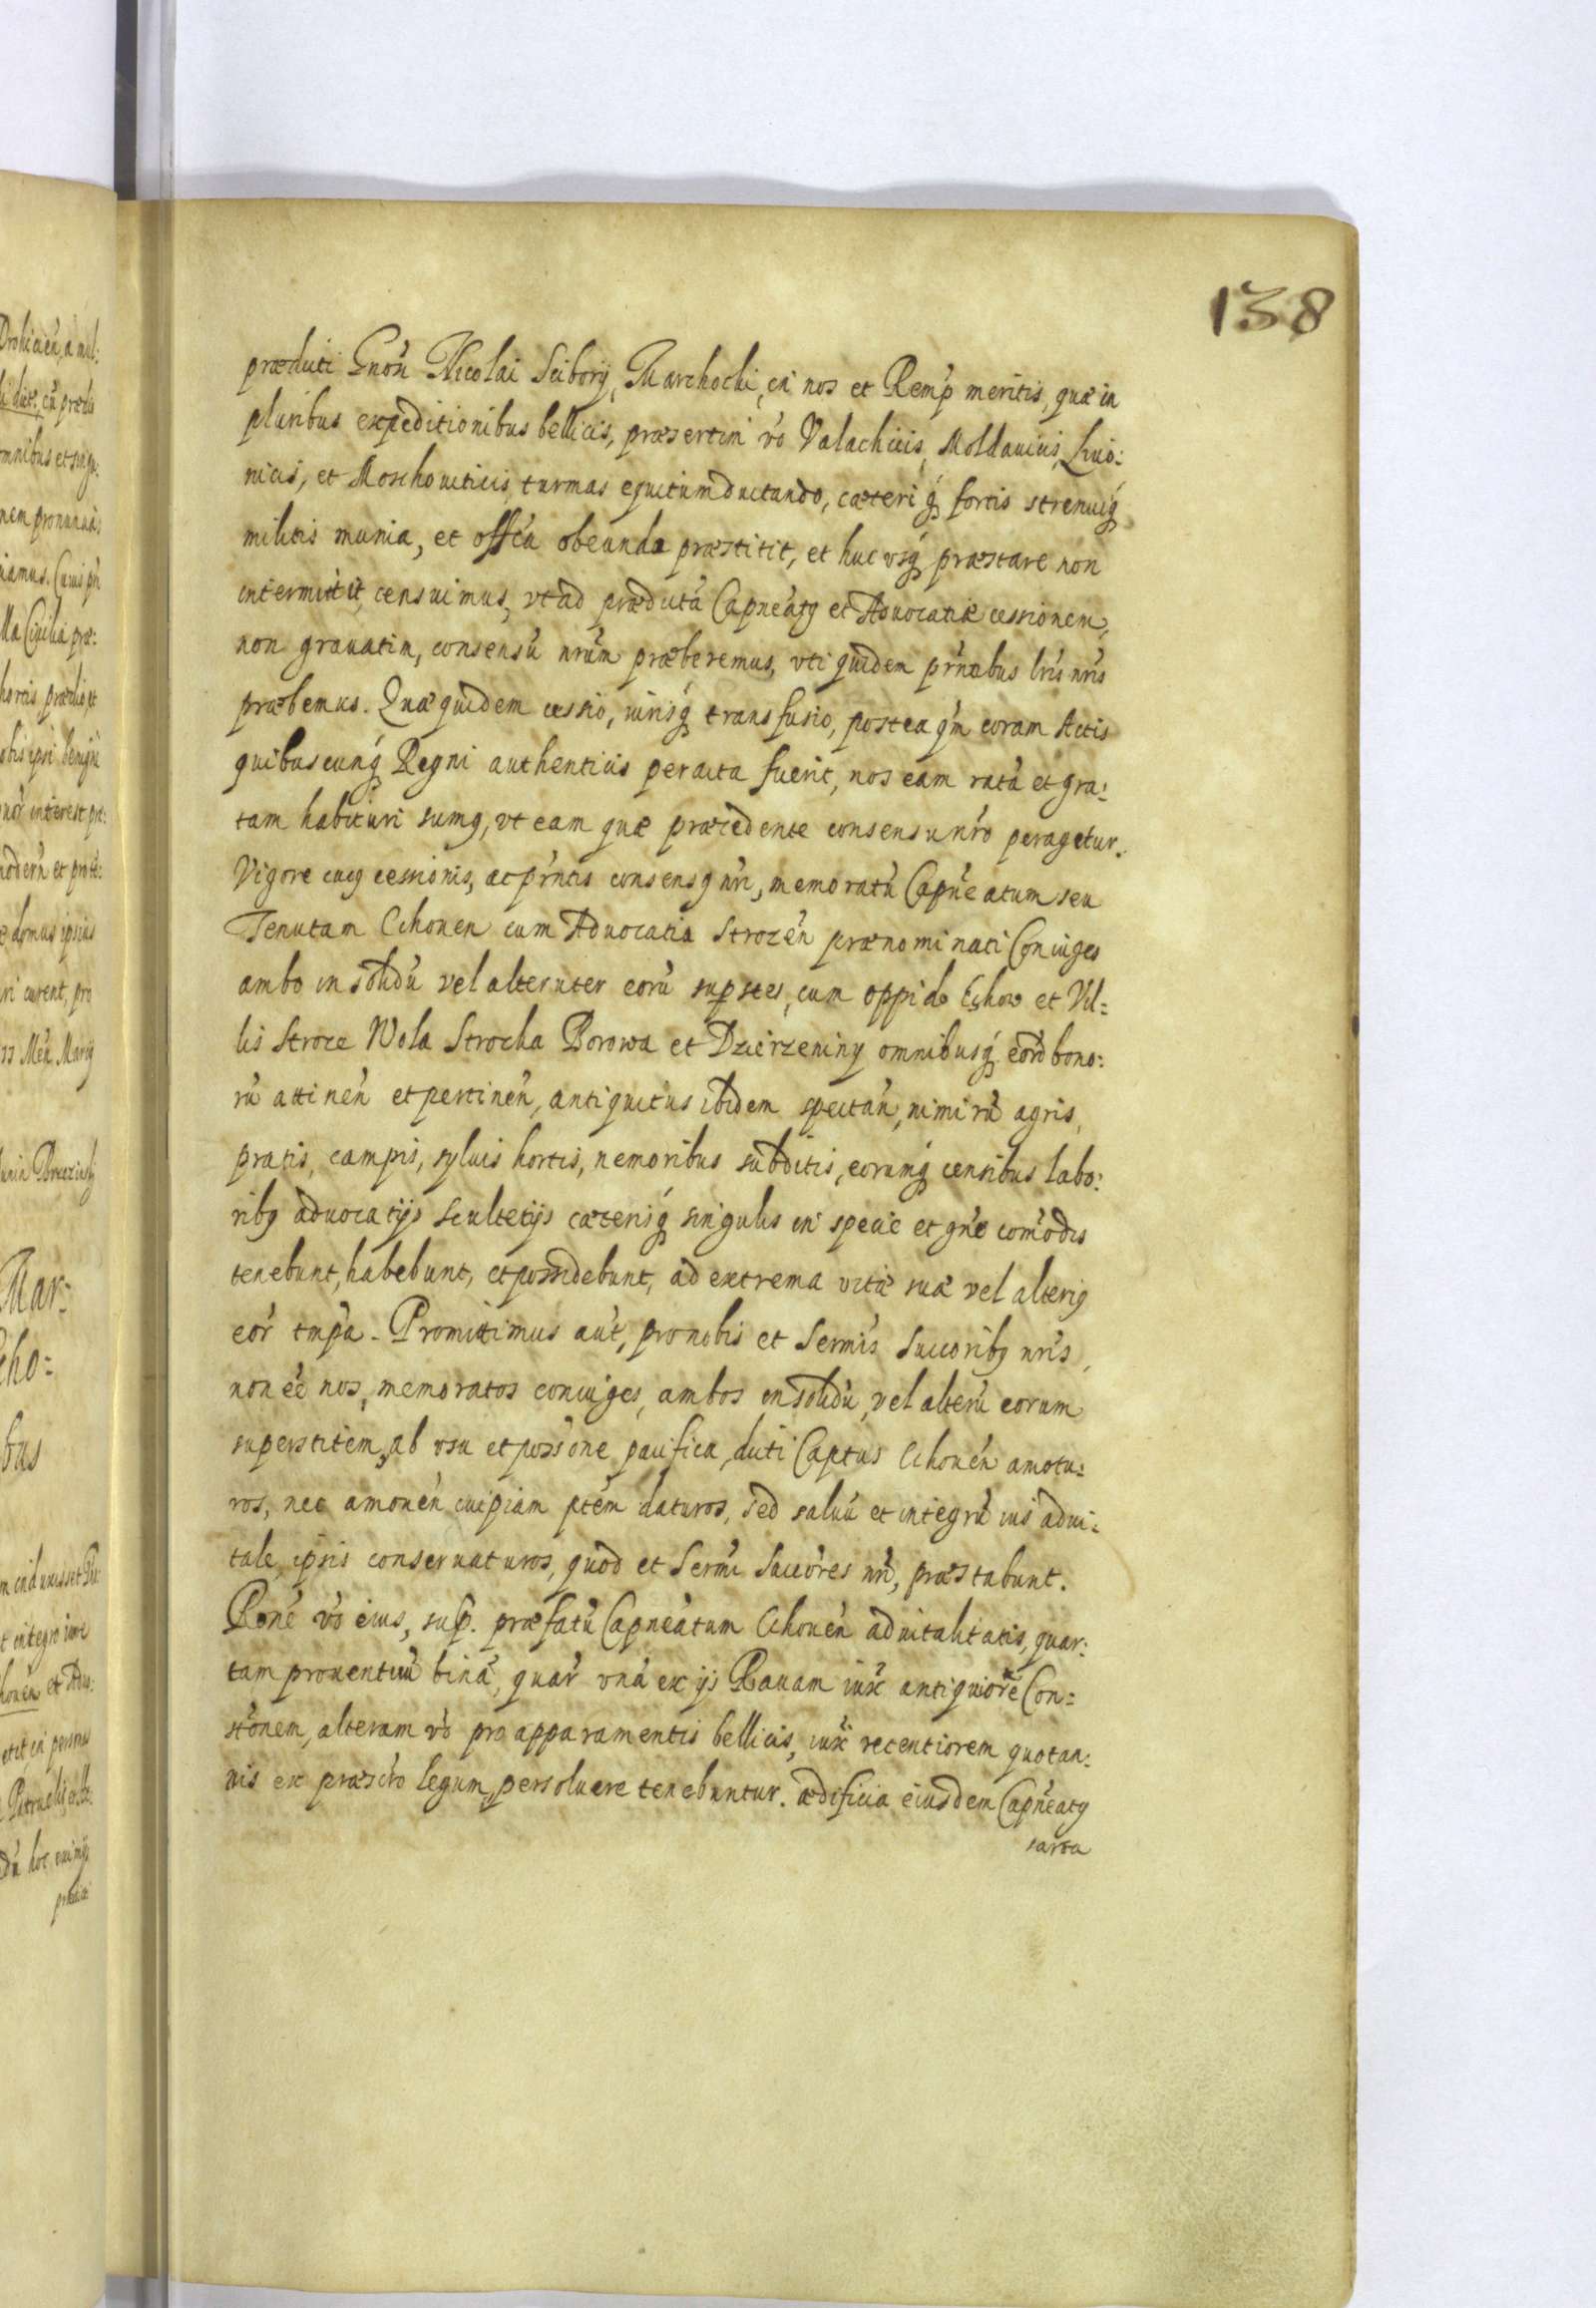 138
prædicti Gnosi Nicolai Scibory, Marchocki, in nos et Remp meritis, quæ in
pluribus expeditionibus bellicis, præsertim vo Valachicis, Moldauicis, Liuo:
nicis, et Moschouiticis, turmas equitum ductando, cæteri q; fortis strenuiq;
militis munia, et offcia obeunda præstitit, et huc vsq; præstare non
intermittit, censuimus, vt ad prædictá Capneatq et Aduocatiæ cessionem,
non grauatim, consensũ nrum præberemus, vti quidem pñtibus lris nris
præbemus. Quæ quidem cessio, iurisq; transfusio, postea qm coram Actis
quibuscunq; Regni authenticis peracta fuerit, nos eam ratã et gra:
tam habituri sumq, vt eam quæ præcedente consensu nro peragetur.
Vigore cuiq cessionis, ac pñtis consensq nri, memoratũ Capneatum seu
Tenutam Cchouen cum Aduocatia Strozen prænominati Coniuges
ambo in solidũ vel alteruter eorũ supstes, cum oppido Cchow et Vil:
lis Stroze Wola Strocka Borowa et Dzierzeniny omnibusq; eord bono:
rũ attinen et pertinen, antiquitus ibidem spectan, nimirũ agris,
pratis, campis, syluis hortis, nemoribus subditis, eorumq; censibus labo:
ribq aduocatijs scultetijs cæterisq; singulis in specie et gne comodis
tenebunt, habebunt, et possidebunt, ad extrema vitæ suæ vel alteriq
eor tmpa. Promittimus aut, pro nobis et Sermis Succoribq nris,
non eé nos, memoratos coniuges, ambos in solidũ, vel alterũ eorum
superstitem, ab vsu et possone pacifica, dicti Captus Cchouen amotu:
ros, nec amouen cuipiam ptem daturos, sed saluũ et integrũ ius adui:
tale, ipsis conseruaturos, quod et Sermi Succores nri, præstabunt.
Rone vo eius, sup. præfatũ Capneatum Cchouen aduitalitatis, quar:
tam prouentuũ binã, quar vnã ex ijs Rauam iux antiquiore Con:
stonem, alteram vo pro apparamentis bellicis, iux recentiorem quotan:
nis ex præscro legum, persoluere tenebuntur. ædificia eiusdem Capneatq
sarta